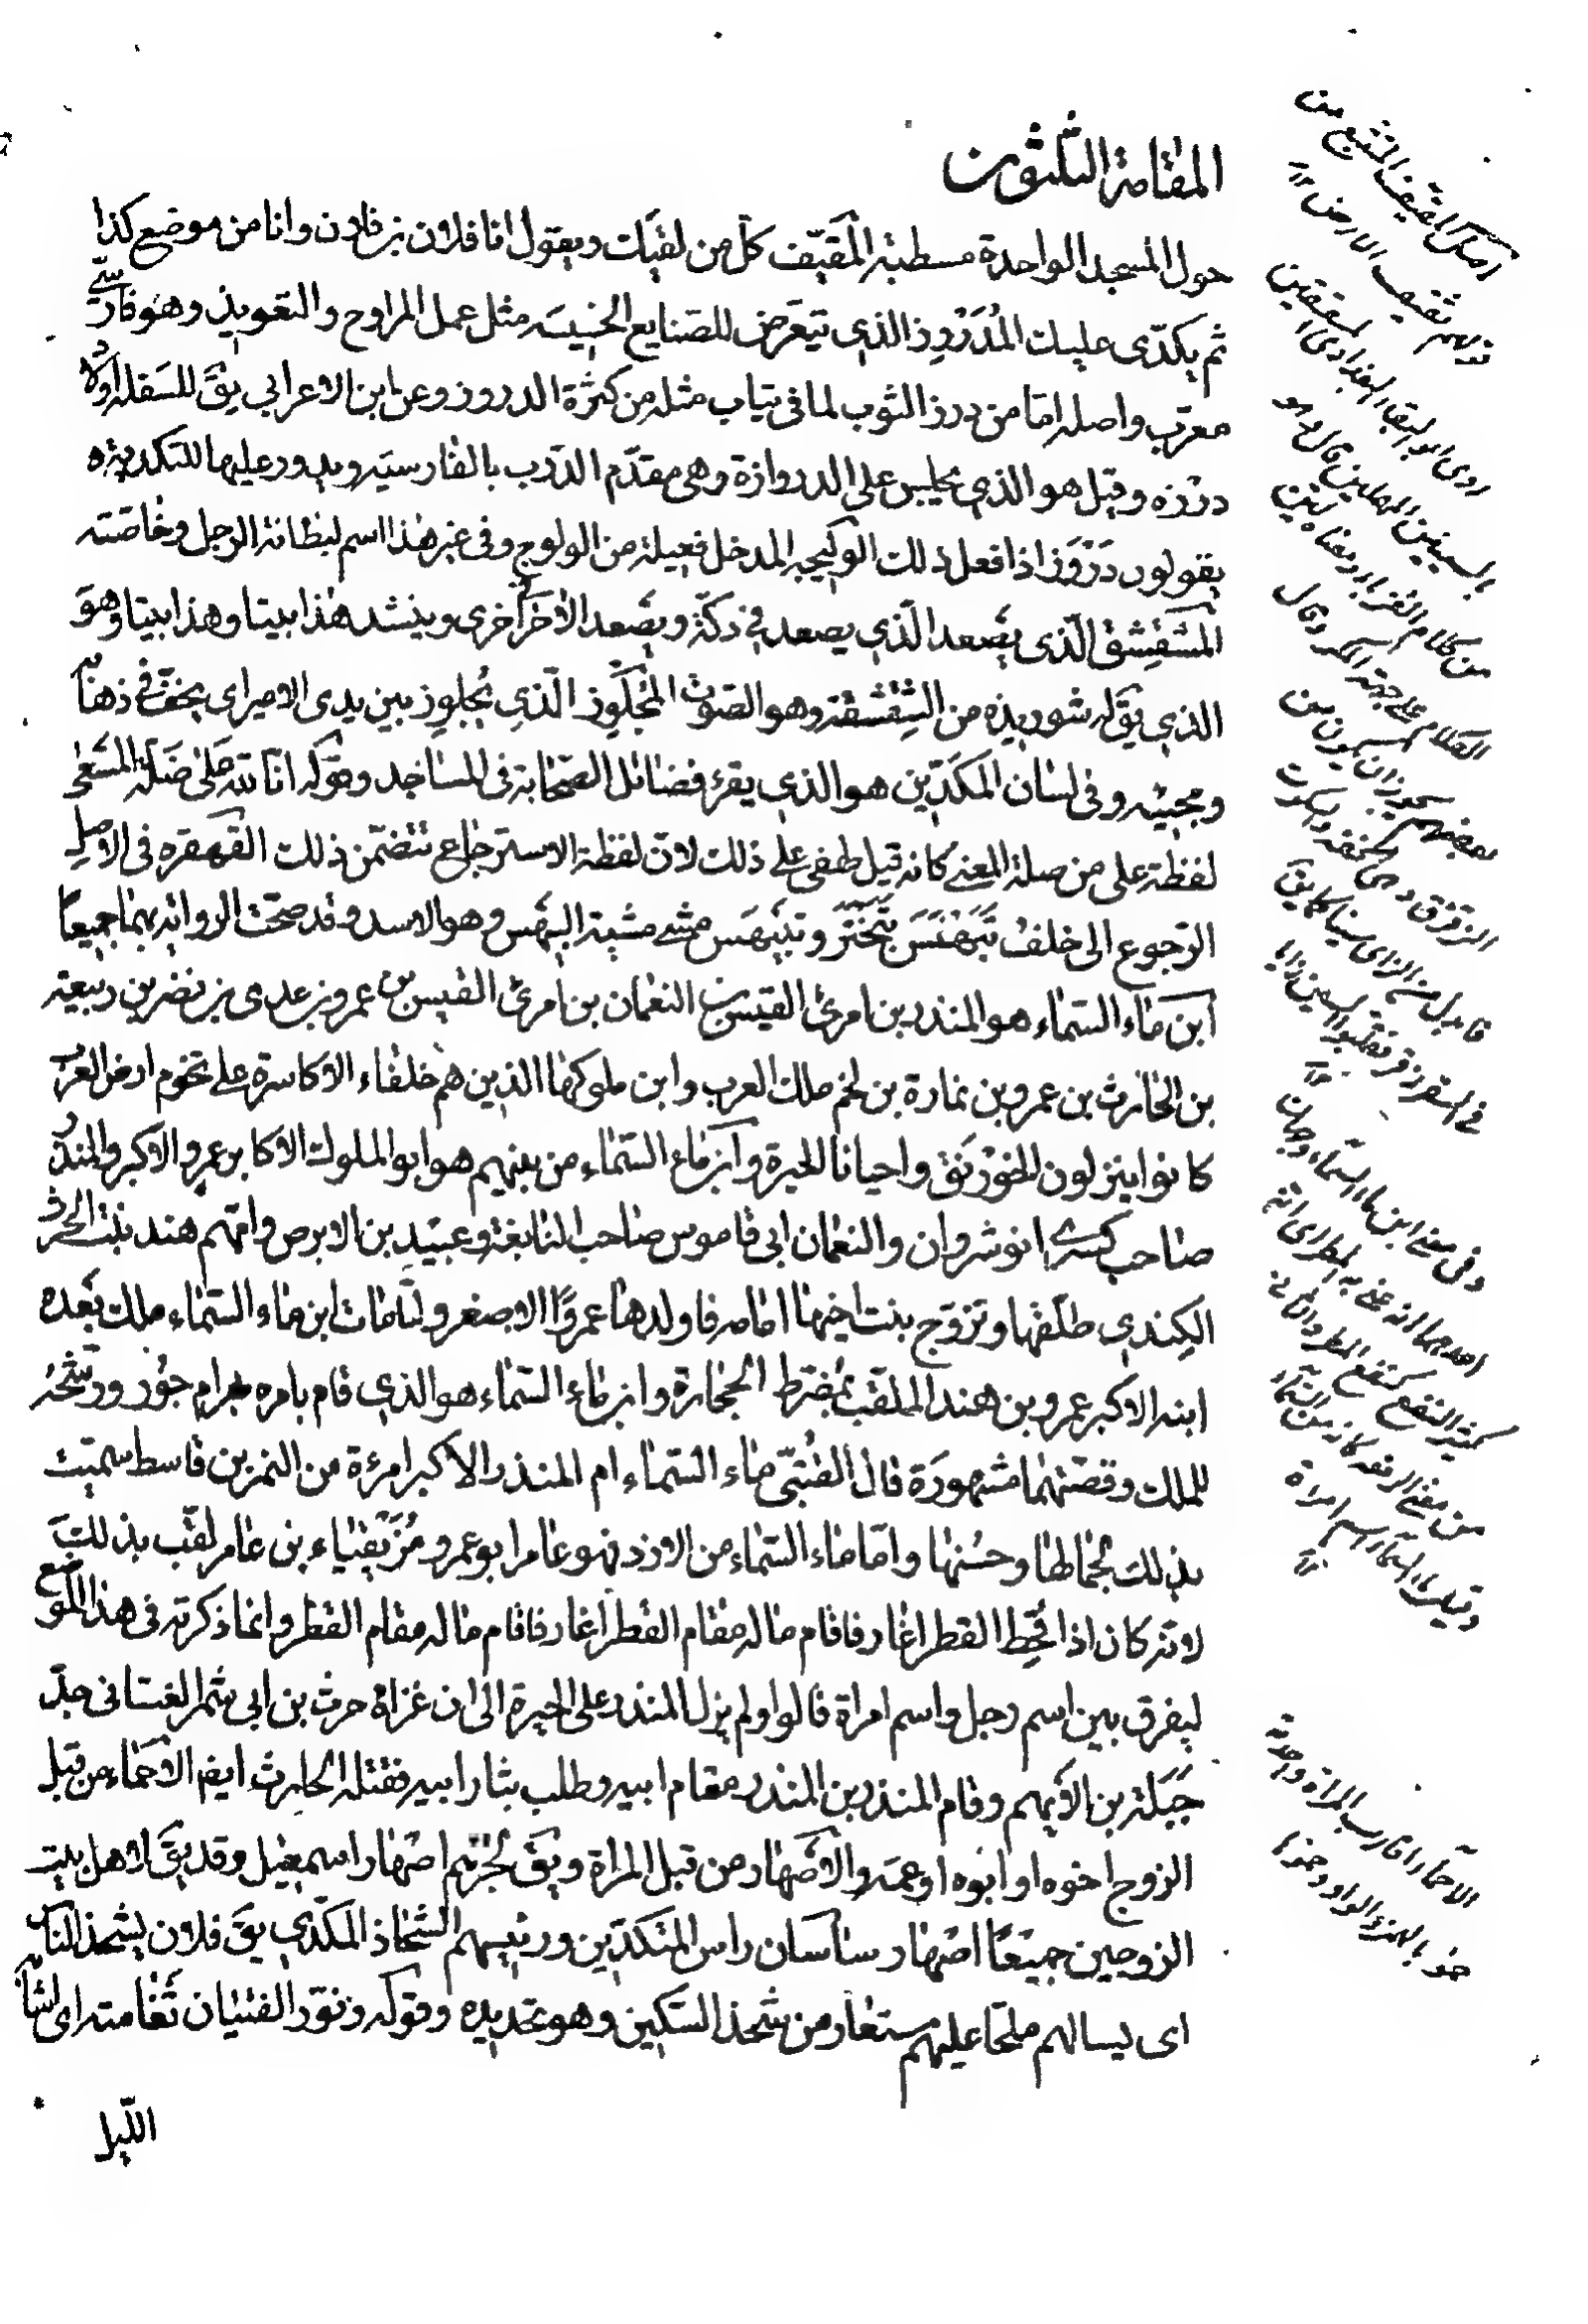 المقامة الثلثون
حول المسجد الواحدة مسطبة المقيّف كلّ من لقيك ويقول انا فلان بن فلان وانا من موضع كذا
ثم يكدّى عليك المُدَرْوِز الذي يتعرّض للصنايع الخسيسة مثل عمل المراوح والتعويذ وهو فارسّى
معرّب واصله امّا من درز الثوب لما فى ثياب مثله من كثرة الدروز وعن ابن الاعرابي يقَ للسفلة اولاد
درزه وقيل هو الذي يجلس على الدروازة وهى مقدّم الدرب بالفارسيّه ويدور عليها للتكدية
يقولون دَرْوَز اذا فعل ذلك الوليجه المدخل فعيلة من الولوج وفى غير هذا اسم لبطانة الرجل وخاصّته
المشقشق الّذى يصعد الّذي يصعد في دكّة ويصعد الآخر اخرى وينشد هذا بيتا وهذا بيتا وهو
الذي يقَ له شوريده من الشقشقة وهو الصوت المُجَلْوِز الّذي يُجلوِز بين يدى الامير اى يخفّ فى ذهابه
ومجيئه وفى لسان المكدّين هو الذي يقرء فضائل الصّحابة فى المساجد وقوله انا لله على ضلّة المسعى
لفظة على من صلة المعنى كانه قيل طفى على ذلك لانّ لفظة الاسترجاع تتضمّن ذلك القهقره فى الاصل
الرّجوع الى خلفُ تَبَهْنَسَ تَبَخْتَرَ وتبيهَس مشى مشية البيهس وهو الاسد وقد صحّت الرواية بهما جميعًا
ابن مآء السّماء هو المنذر بن امرئ القيس بن النعمان بن امرئ القيس بن عمرو بن عدى بن نضر بن ربيعة
بن الحارث بن عمرو بن نمارة بن لخم ملك العرب وابن ملوكها الذين هم خلفاء الاكاسرة على تخوم ارض العرب
كانوا ينزلون الخَوَرْنَق واحيانا الحيرة وابن ماء السّماء من بينهم هو ابو الملوك الاكابر عمرو الاكبر والمنذر
صاحب كسرى انوشروان والنعمان ابى قاموس صاحب النابغة وعبيد بن الابرص وامّهم هند بنت الحرث
الكِندي طلّقها وتزوّج بنت اخيها امامه فاولدها عمروًا الاصغر ولمّا مات ابن ماء السّماء ملك بعده
ابنه الاكبر عمرو بن هند الملقّب بمضرّط الحجارة وابن ماء السّماء هو الذي قام بامره بهرام جُوْر ورشّحه
للملك وقصّتهما مشهورَة قال القُتَبّى ماء السّماء ام المنذر الاكبر امرءة من النمر بن قاسط سمّيت
بذلك لجمالها وحسنها وامّا ماء السّماء من الازد فهو عامر ابو عمرو مُزَيقياء بن عامر لقّب بذلك
لانّه كان اذا قُحِط القطر اغار فاقام ماله مقام القطر اغار فاقام ماله مقام القطر وانما ذكرته فى هذا الموضع
ليفرق بين اسم رجل واسم امراة قالوا ولم يزل المنذر على الحيرة الى ان غزاه حرث بن ابي شمر الغسانى جدّ
جَبَلة بن الايهم وقام المنذر بن المنذر مقام ابيه وطلب بثار ابيه فقتله الحارث ايضا الاحماء من قبل
الزوج اخوه او ابوه او عمه والاصهار من قبل المراة ويقَ لجُرهم اصهار اسمعيل وقد يقَ لاهل بيت
الزوجين جميعًا اصهار ساسان راس المتكدّين ورئيسهم الشحّاذ المكدّي يقَ فلان يشحذ الناس
اى يسالهم ملحّا عليهم مستعار من شحذ السكّين وهو تحديده وقوله ونوّر الفتيان ثغامته اى اشاب
الليل
اصل المقيف المتتبع من
قولهم تقيف الارض
روى ابو البقا البغدادى المسقفين
بالسينين المهملين قال وهو
من كلام الفقراء ومعناه
الكلام على جهة الكدّ وقال
بعضهم يجوز ان يكون من
وفى معنى ابن ماء السّماء وجهان
احدهما انه عنى به المطر اى انه
كثير النفع كنفع المطر والثانى
من معنى الرفعة كانه من السّماء
وقيل ماء السّماء اسم امراة
الاحمآء اقارب المراة واحده
حمو بالهمزة والواو وحذفها